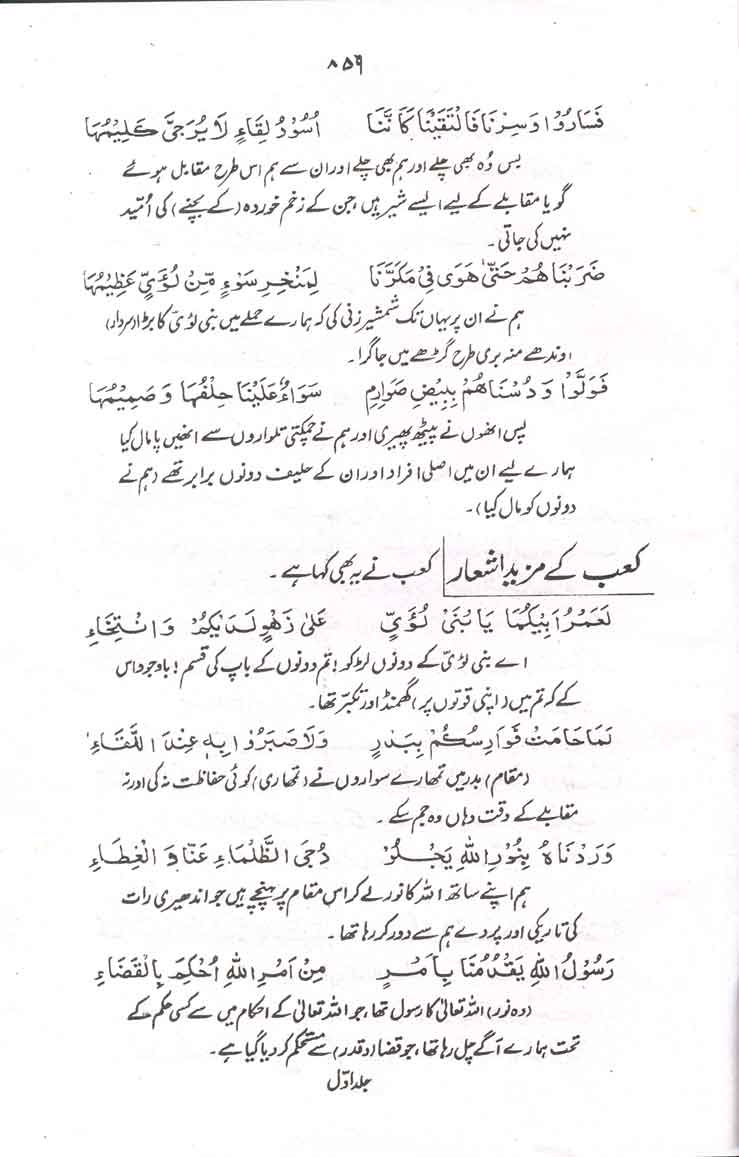 ۸۵۶
فَسَارُوْا وَسِرْنَا فَالْتَقَيْنَا كَاَنَّنَا اُسُوْدُ لِقَاءٍ لَا يُرَجّٰى كَلِيْمُهَا
پس وُہ بھی چلے اور ہم بھی چلے اور ان سے ہم اس طرح مقابل ہوئے
گویا مقابلے کے لیے ایسے شیر ہیں، جن کے زخم خوردہ (کے بچنے) کی اُمّید
نہیں کی جاتی۔
ضَرَبْنَاهُمْ حَتّٰى هَوٰى فِيْ مَكَرِّنَا لِمَنْخِرِ سَوْءٍ مِّنْ لُؤَيٍّ عَظِيْمُهَا
ہم نے ان پر یہاں تک شمشیر زنی کی کہ ہمارے حملے میں بنی لؤیّ کا بڑا (سردار)
اوندھے منہ بری طرح گڑھے میں جا گرا۔
فَوَلَّوْا وَدُسْنَاهُمْ بِبِيْضٍ صَوَارِمِ سَوَاءٌ عَلَيْنَا حِلْفُهَا وَصَمِيْمُهَا
پس انھوں نے پیٹھ پھیری اور ہم نے چمکتی تلواروں سے انھیں پامال کیا
ہمارے لیے ان میں اصلی افراد اور ان کے حلیف دونوں برابر تھے (ہم نے
دونوں کو مال کیا)۔
کعب کے مزید اشعار کعب نے یہ بھی کہا ہے۔
لَعَمْرُ اَبِيْكُمَا يَا بُنَىْ لُؤَيٍّ عَلٰى زَهْوٍ لَدَيْكُمْ وَانْتِخَاءِ
اے بنی لؤیّ کے دونوں لڑکو! تم دونوں کے باپ کی قسم! باوجود اس
کے کہ تم میں (اپنی قوتوں پر) گھمنڈ اور تکبّر تھا۔
لَمَا حَامَتْ فَوَارِسُكُمْ بِبَدْرٍ وَلَا صَبَرُوْا بِهٖ عِنْدَ اللِّقَاءِ
(مقام) بدر میں تمھارے سواروں نے (تمھاری) کوئی حفاظت نہ کی اور نہ
مقابلے کے وقت وہاں وہ جم سکے۔
وَرَدْنَاهُ بِنُوْرِ اللهِ يَجْلُوْ دُجَى الظَّلْمَاءِ عَنَّا وَالْغِطَاءِ
ہم اپنے ساتھ اللہ کا نور لے کر اس مقام پر پہنچے ہیں جو اندھیری رات
کی تاریکی اور پردے ہم سے دور کر رہا تھا۔
رَسُوْلُ اللهِ يَقْدُمُنَا بِاَمْرٍ مِنْ اَمْرِ اللهِ اُحْكِمَ بِالْقَضَاءِ
(وہ نور) اللہ تعالیٰ کا رسول تھا، جو اللہ تعالیٰ کے احکام میں سے کسی حکم کے
تحت ہمارے آگے چل رہا تھا، جو قضا (و قدر) سے مستحکم کر دیا گیا ہے۔
جلد اوّل